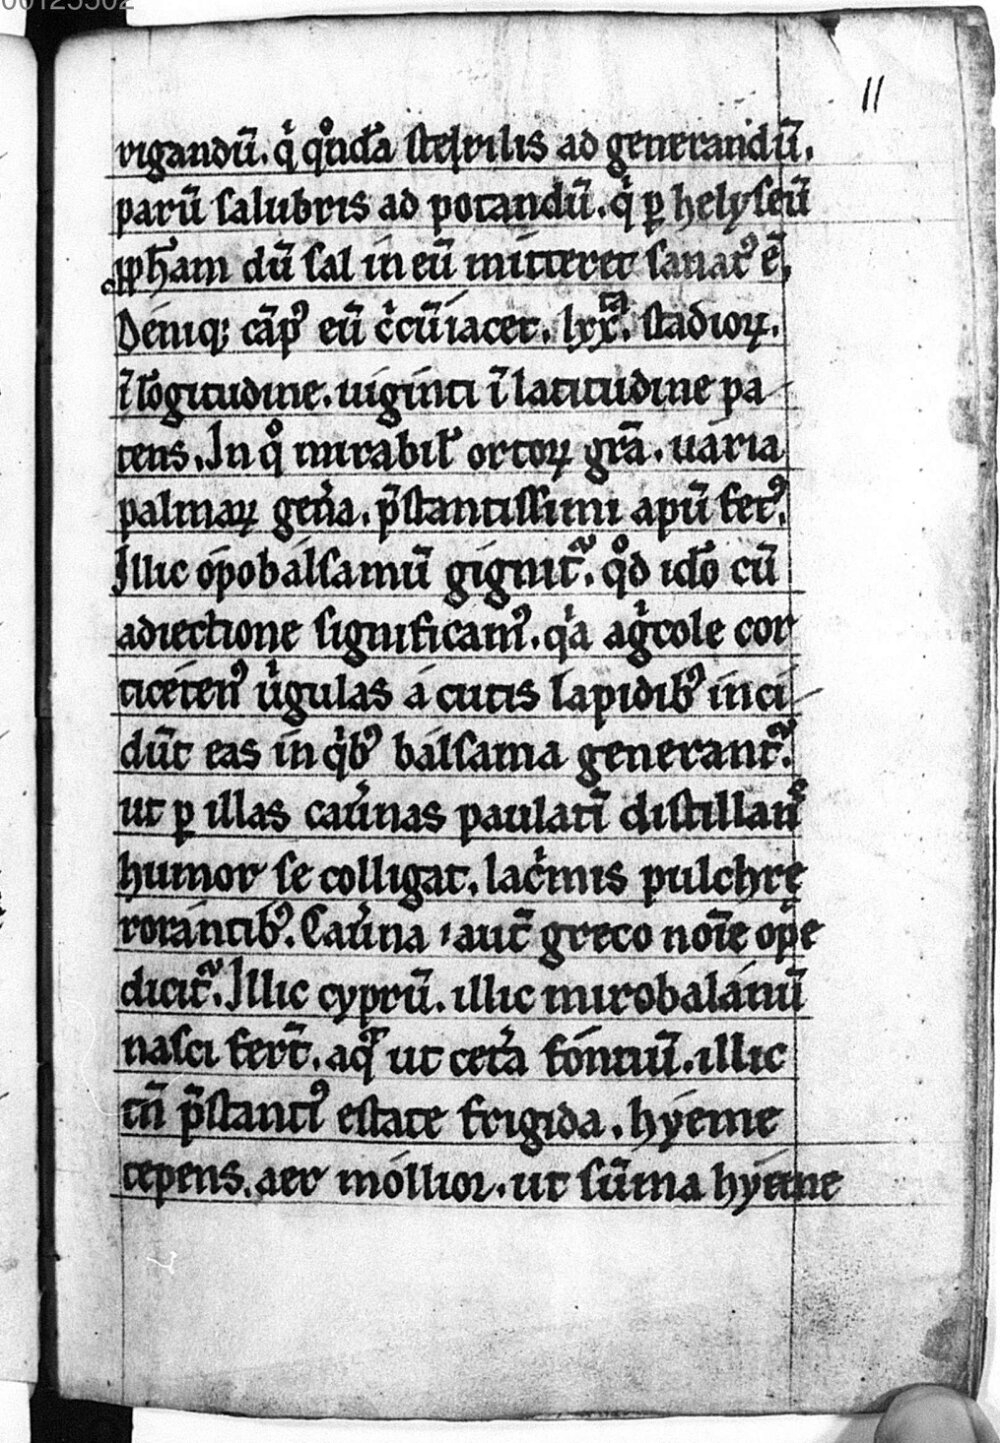 00125502
11
rigandū. q̓ qͦndā sterilis ad generandū.
parū salubris ad potandū. q̓ ꝑ helyseū
ꝓph̄am dū sal in eū mitteret sanatꝰ ē.
Deniq; cāpꝰ eū c̓cūiacet. lxxᵗᵃ. stadioꝝ.
ī lōgitudine. uiginti ī latitudine pa
tens. In qͦ mirabil̄ ortoꝝ gr̄a. uaria
palmaꝝ gen̓a. p̄stantissimi apū fetꝰ.
Illic opobalsamū gignit᷑. qͦd id̄o cū
adiectione significamꝰ. q̓a ag̓cole cor
ticetenꝰ u̓gulas acutis lapidibꝰ inci
dūt eas in q̓bꝰ balsama generant᷑.
ut ꝑ illas cau̓nas paulatī distillanˢ
humor se colligat. lac̓mis pulchrę
rorantibꝰ. Cau̓na aut̄ greco noīe ope
dicit᷑. Illic cyprū. illic mirobalanū
nasci fert̄. aqᷓ ut cet̓a fontiū. illic
tn̄ p̄stantiꝰ estate frigida. hyeme
tepens. aer mollior. ut sūma hyeme